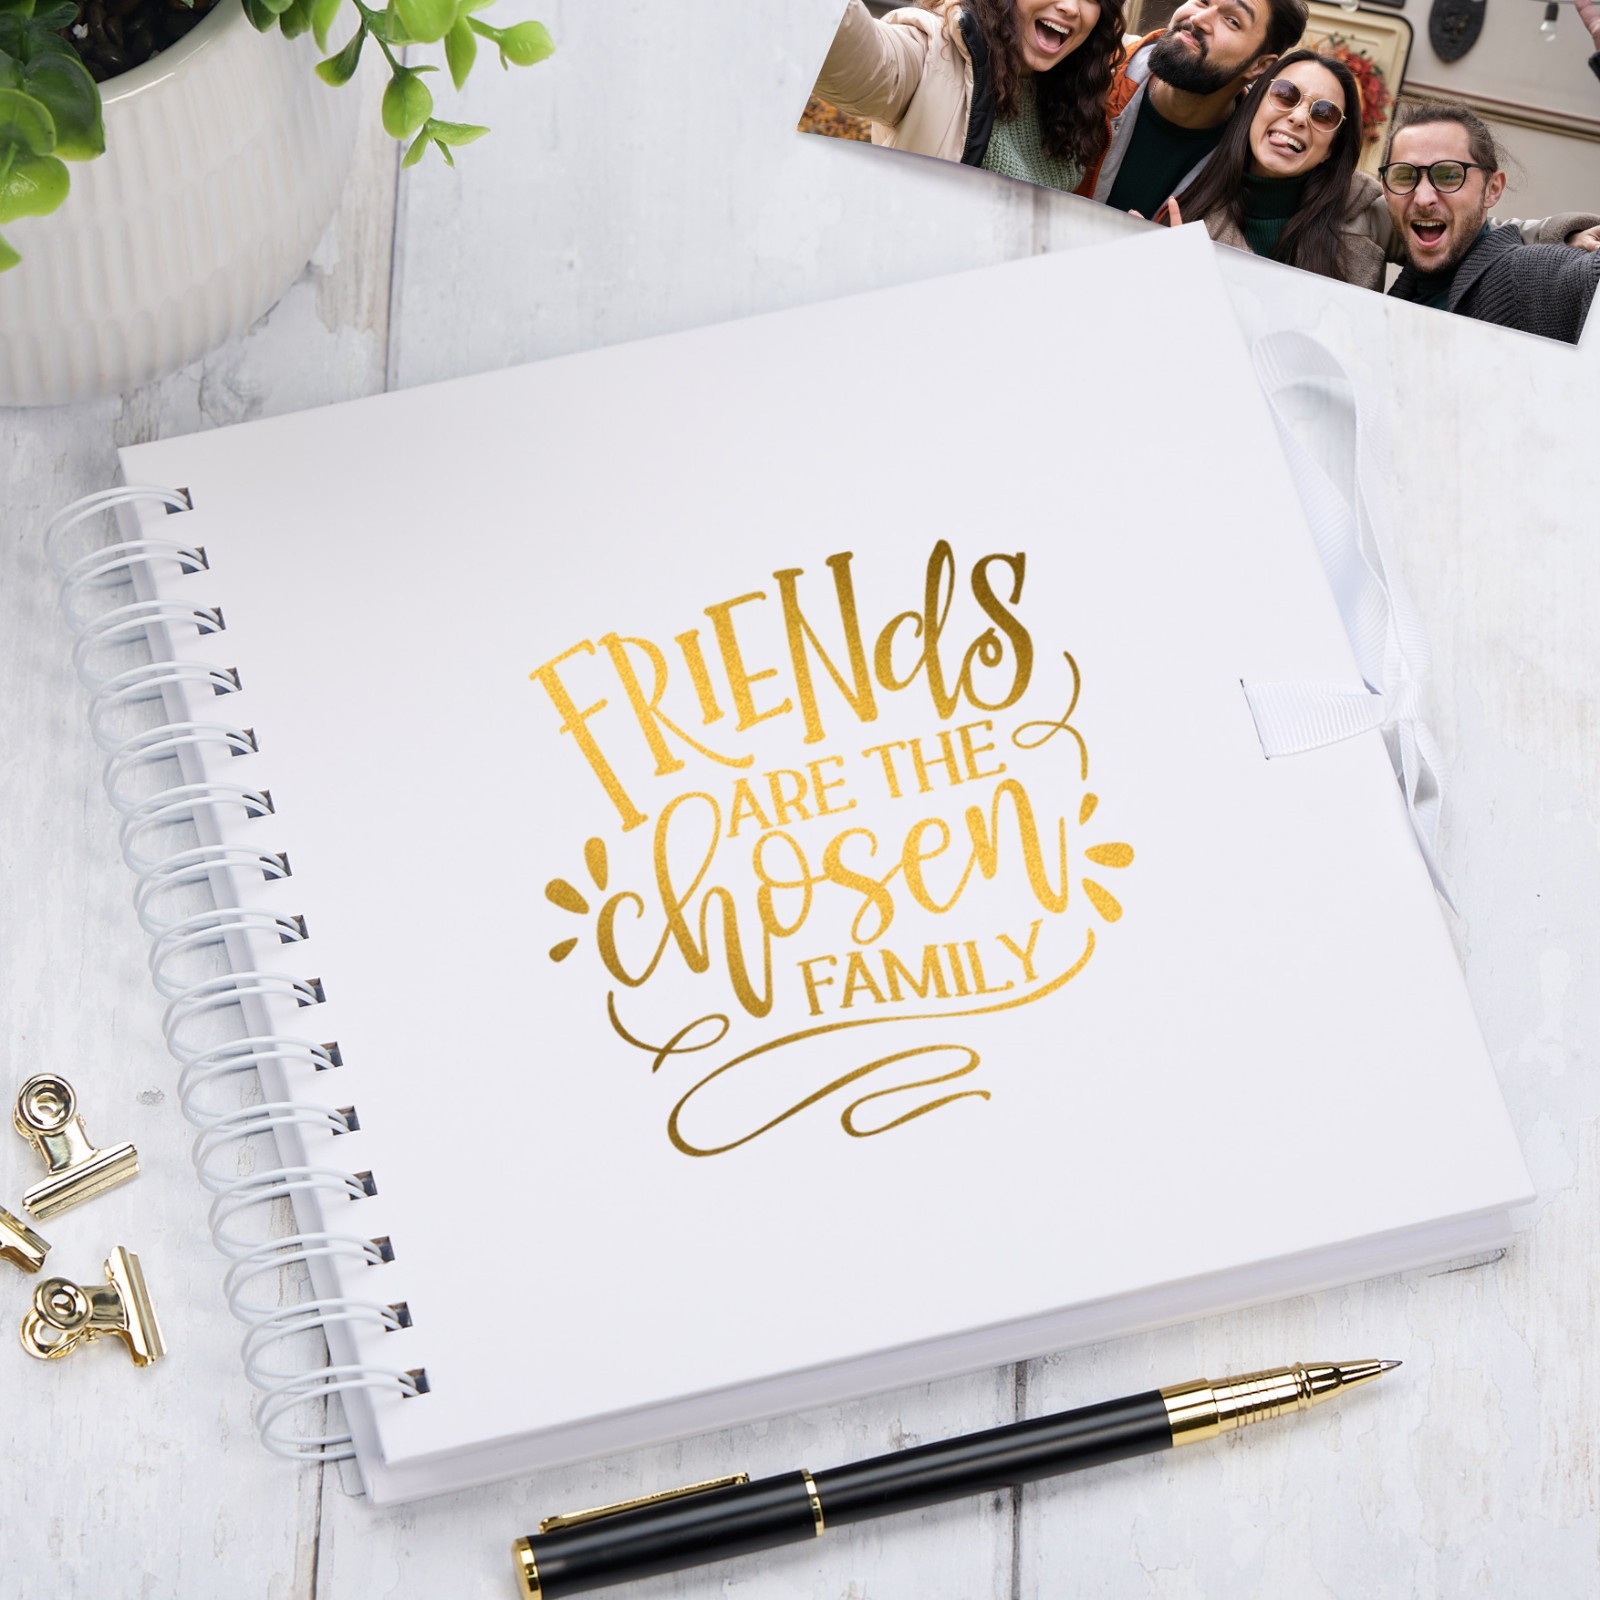 FRIENds
ARE THE
chosen
FAMILY